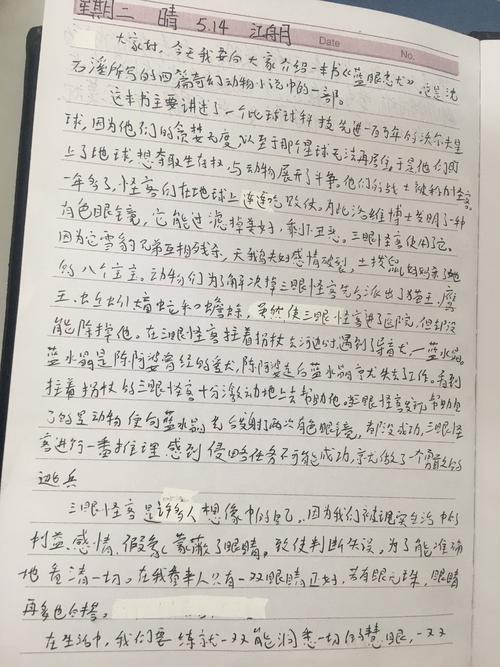 星期二 晴 5.14 江舟月
Date No.
大家好，今天我要向大家介绍一本书《蓝眼忠犬》，这是沈
石溪所写的四篇奇幻动物小说中的一部。
这本书主要讲述了一个比地球科技先进一百万年的沃尔夫星
球，因为他们的贪婪无度以至于那个星球无法再居住，于是他们
上了地球，想夺取生存权，与动物展开了斗争。他们的战士被称为怪客。
一年多了，怪客们在地球上连连吃败仗。为此洛维博士发明了一种
有色眼镜，它能过滤掉美好，剩下丑恶。三眼怪客使用了它。
因为它雪豹兄弟互相残杀，天鹅夫妇感情破裂，土拨鼠
的八个主主。动物们为了解决掉三眼怪客先后派出了猫王、鹰
王、虫王、蝎蛇和蟾蜍，虽然使三眼怪客进了医院，但却没
能除掉他。在三眼怪客拄着拐杖去河边时，遇到了导盲犬一蓝水晶。
蓝水晶是陈阿婆曾经的爱犬，陈阿婆走后蓝水晶失去了工作。看到
拄着拐杖的三眼怪客十分激动地上去帮助他。三眼怪客发现帮助他
的是动物便向蓝水晶发射了两次有色眼镜，都没成功，三眼怪
客进行一番推理，感到侵略任务不可能成功，就做了一个的
逃兵
三眼怪客是许多人想像中的自己，因为我们被现实生活中的
利益、感情、假象蒙蔽了眼睛。致使判断失误，为了能准确
地看清一切。在我看来人只有一双眼睛正好，若有眼无珠，眼睛
再多也白搭。
在生活中，我们要练就一双能洞悉一切的慧眼，一双